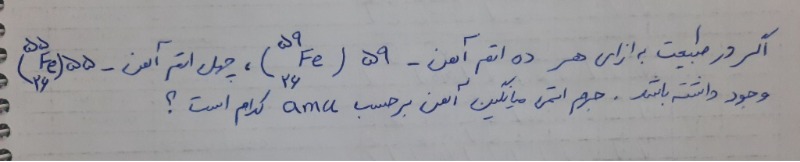 اگر در طبیعت به ازای هر ده اتم آهن - ۵۹ (⁵⁹₂₆Fe) ، چهل اتم آهن - ۵۵ (⁵⁵₂₆Fe)
وجود داشته باشد . جرم اتمی میانگین آهن برحسب amu کدام است ؟